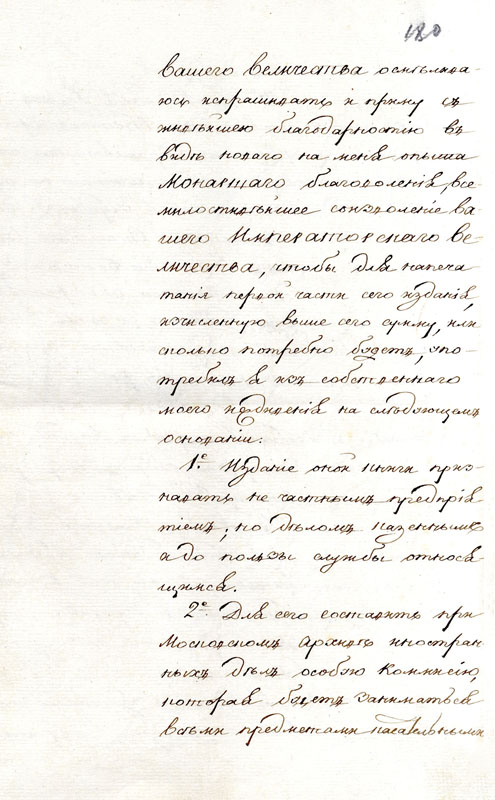 180
вашего величества осмѣлива-
юсь испрашивать и приму съ
живѣйшею благодарностію въ
видѣ новаго на меня опыта
Монаршаго благоволенія, все-
милостивѣйшее соизволеніе ва-
шего Императорскаго ве-
личества, чтобы для напеча-
танія первой части сего изданія,
изчисленную выше сего сумму, или
сколько потребно будетъ, упо-
требилъ я изъ собственнаго
моего иждивенія на слѣдующемъ
основаніи:
1е. Изданіе оной книги приз-
навать не частнымъ предпрія-
тіемъ, но дѣломъ казеннымъ
и до пользы службы относя-
щимся.
2е. Для сего составить при
Московскомъ Архивѣ иностран-
ныхъ дѣлъ особую Коммисію,
которая будетъ заниматься
всѣми предметами касательными